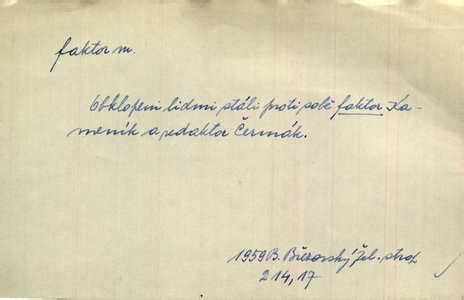 faktor m.
Obklopeni lidmi stáli proti sobě faktor Ka-
meník a redaktor Čermák.
1959 B. Březovský, Žel. strop
214,17